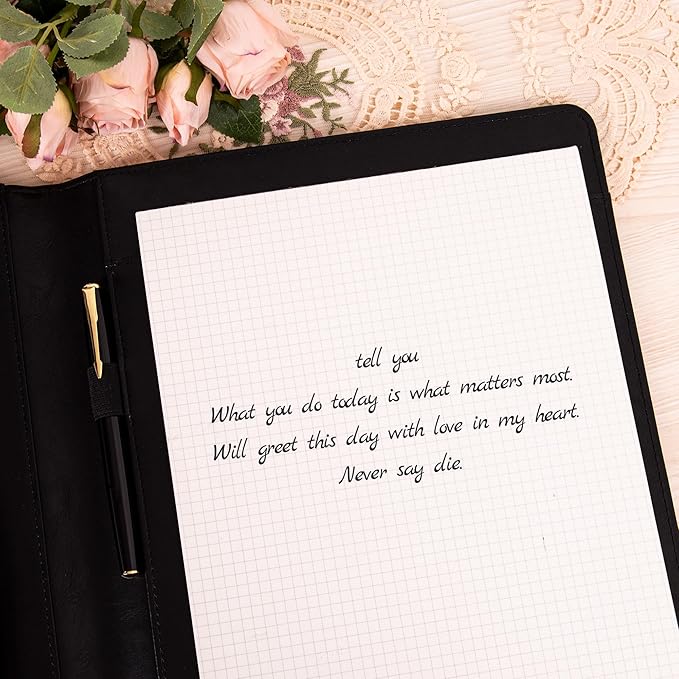 tell you
What you do today is what matters most.
Will greet this day with love in my heart.
Never say die.